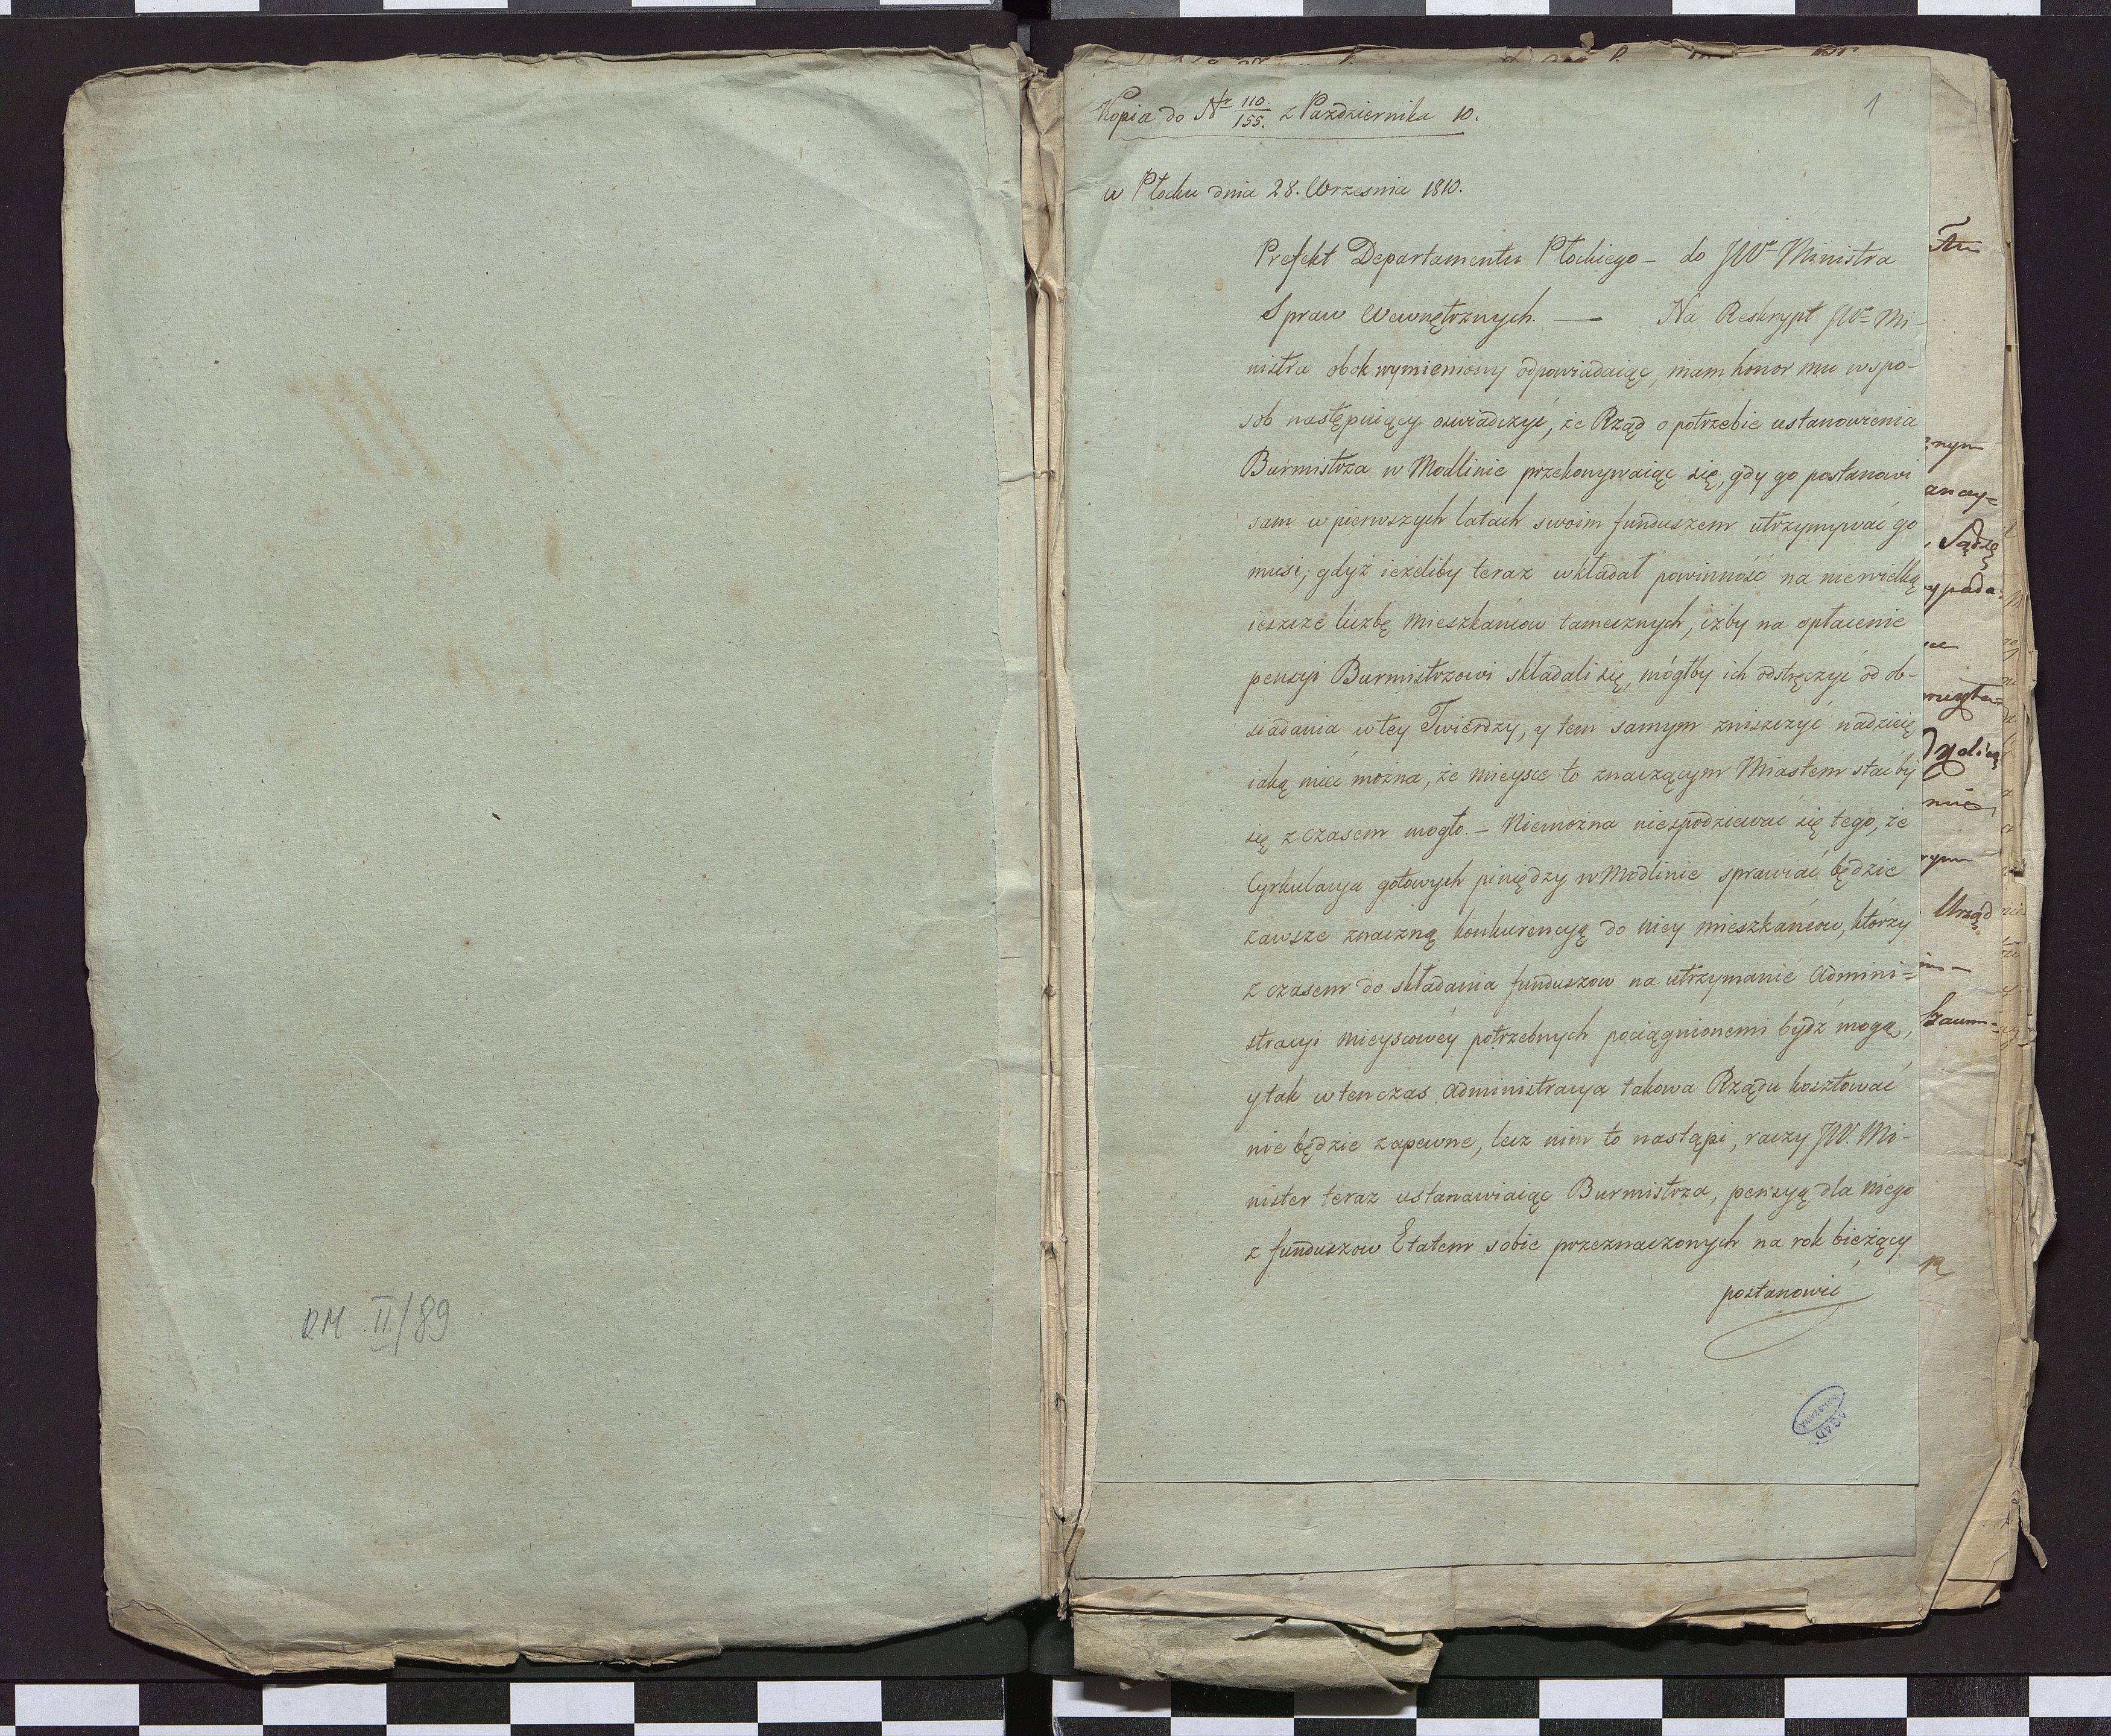 DM II/89
1
Kopia do Nr 110/155. z Pazdziernika 10.
w Płocku dnia 28. Września 1810.
Prefekt Departamentu Płockiego — do JWo Ministra
Spraw Wewnętrznych. — Na Reskrypt JWo Mi-
nistra obok wymieniony odpowiadaiąc, mam honor mu w spo-
sob następuiący oswiadczyć, że Rząd o potrzebie ustanowienia
Burmistrza w Modlinie przekonywaiąc się, gdy go postanowi
sam w pierwszych latach swoim funduszem utrzymywać go
musi, gdyż ieżeliby teraz wkładał powinność na niewielką
ieszcze liczbę Mieszkańcow tamecznych, iżby na opłacenie
pensyi Burmistrzowi składali się, mógłby ich odstręczyć od ob-
siadania w tey Twierdzy, y tem samym zniszczyć nadzieię
iaką mieć można, że mieysce to znaczącym Miastem stać by
się z czasem mogło. — Niemożna niespodziewać się tego, że
Cyrkulacya gotowych pinięd​zy w Modlinie sprawiać będzie
zawsze znaczną konkurencyą do niey mieszkańcow, którzy
z czasem do składania funduszow na utrzymanie Admini=
stracyi Mieyscowéy potrzebnych pociągnionemi bydź mogą,
y tak wtenczas Administracya takowa Rządu kosztować
nie będzie zapewne, lecz nim to nastąpi, raczy JW. Mi-
nister teraz ustanawiaiąc Burmistrza, pensyą dla niego
z funduszow Etatem sobie przeznaczonych na rok bieżący
postanowić
AGAD
WARSZAWA